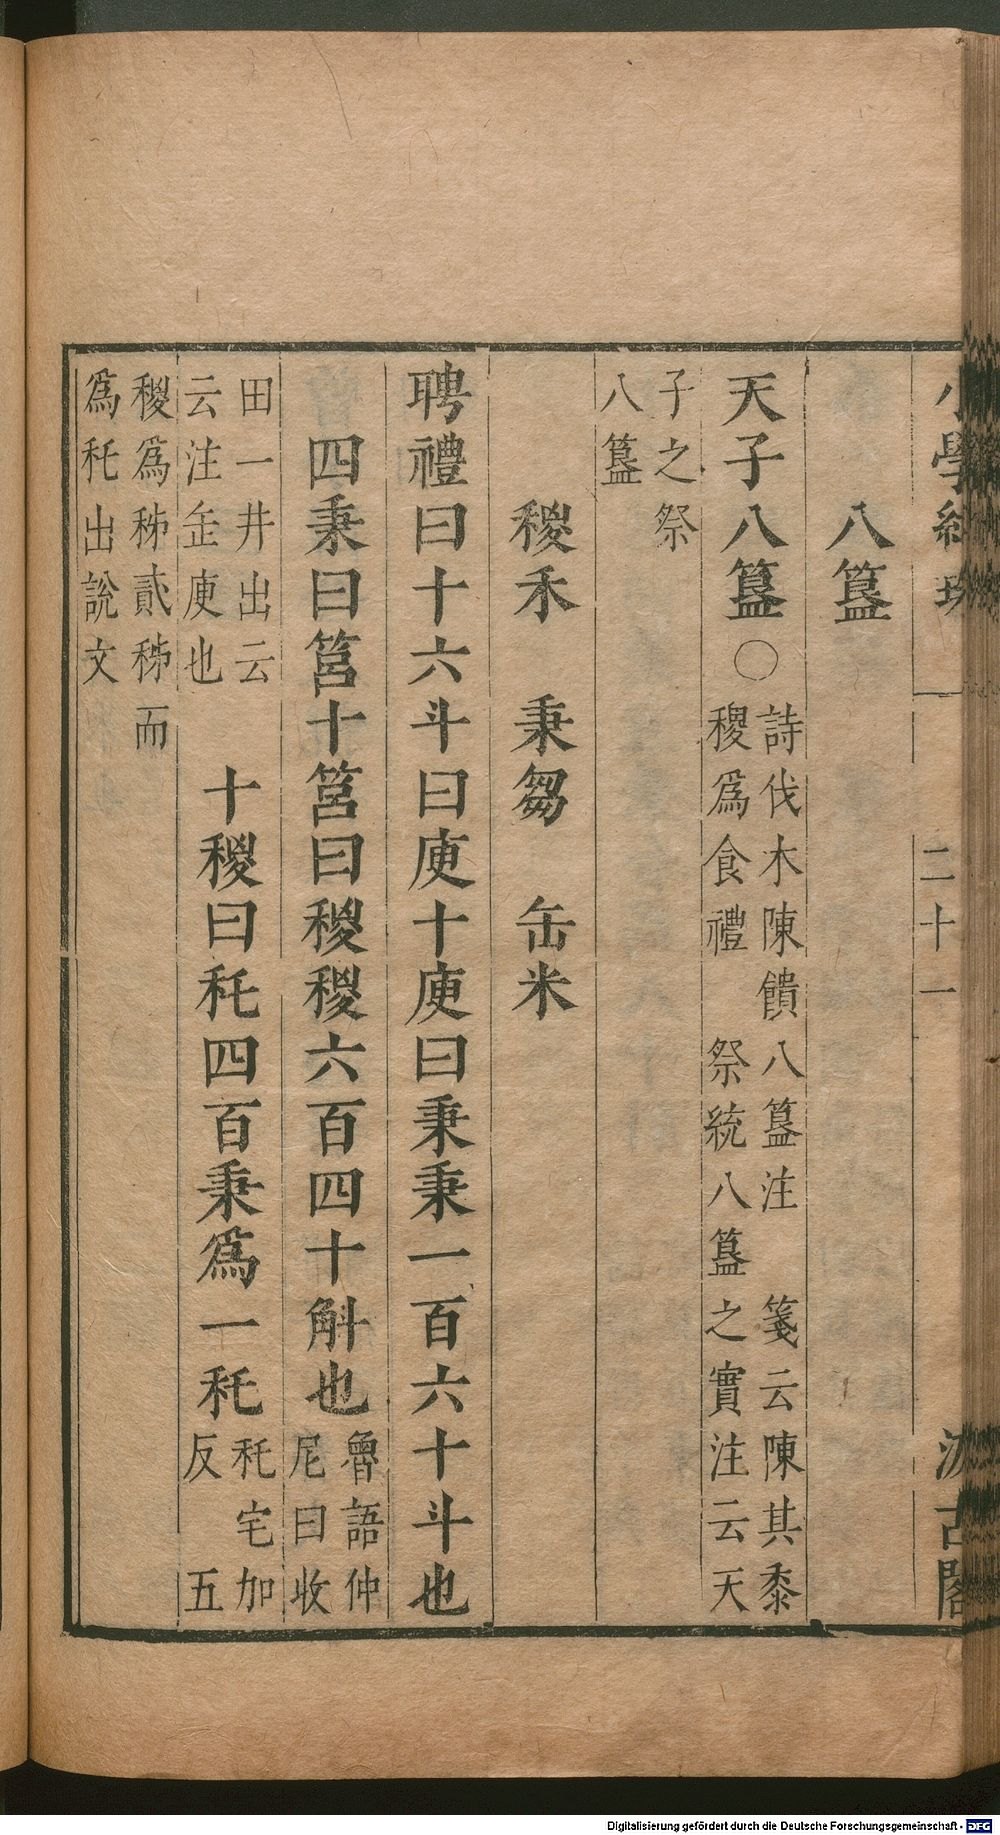 小學紺珠 二十一 汲古閣
八簋
天子八簋○
詩伐木陳饋八簋注 箋云陳其黍
稷爲食禮 祭統八簋之實注云天
子之祭
八簋
稯禾 秉芻 缶米
聘禮曰十六斗曰庾十庾曰秉秉一百六十斗也
四秉曰筥十筥曰稯稯六百四十斛也
魯語仲
尼曰收
田一井出云
云注缶庾也
十稯曰秅四百秉爲一秅
秅宅加
反 五
稯爲秭貳秭而
爲秅出說文
Digitalisierung gefördert durch die Deutsche Forschungsgemeinschaft - DFG